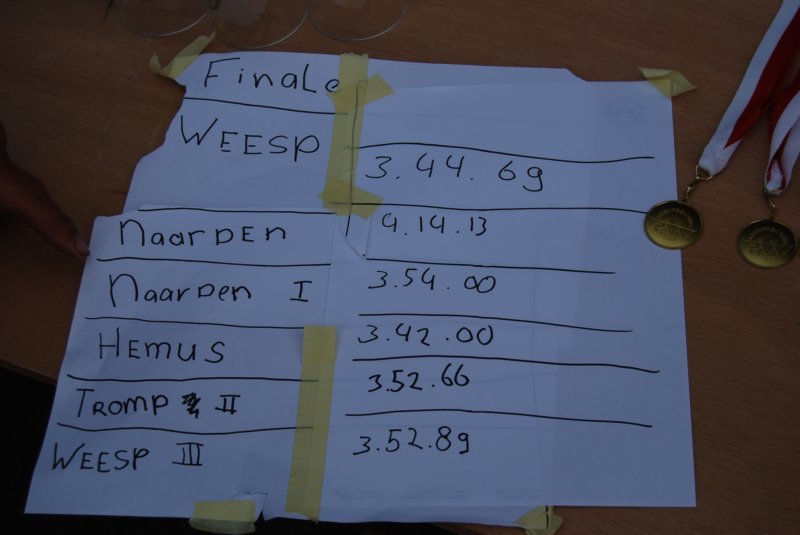 Finale
WEESP 3.44.69
Naarden 4.14.13
Naarden I 3.54.00
HEMUS 3.42.00
TROMP II 3.52.66
WEESP III 3.52.89